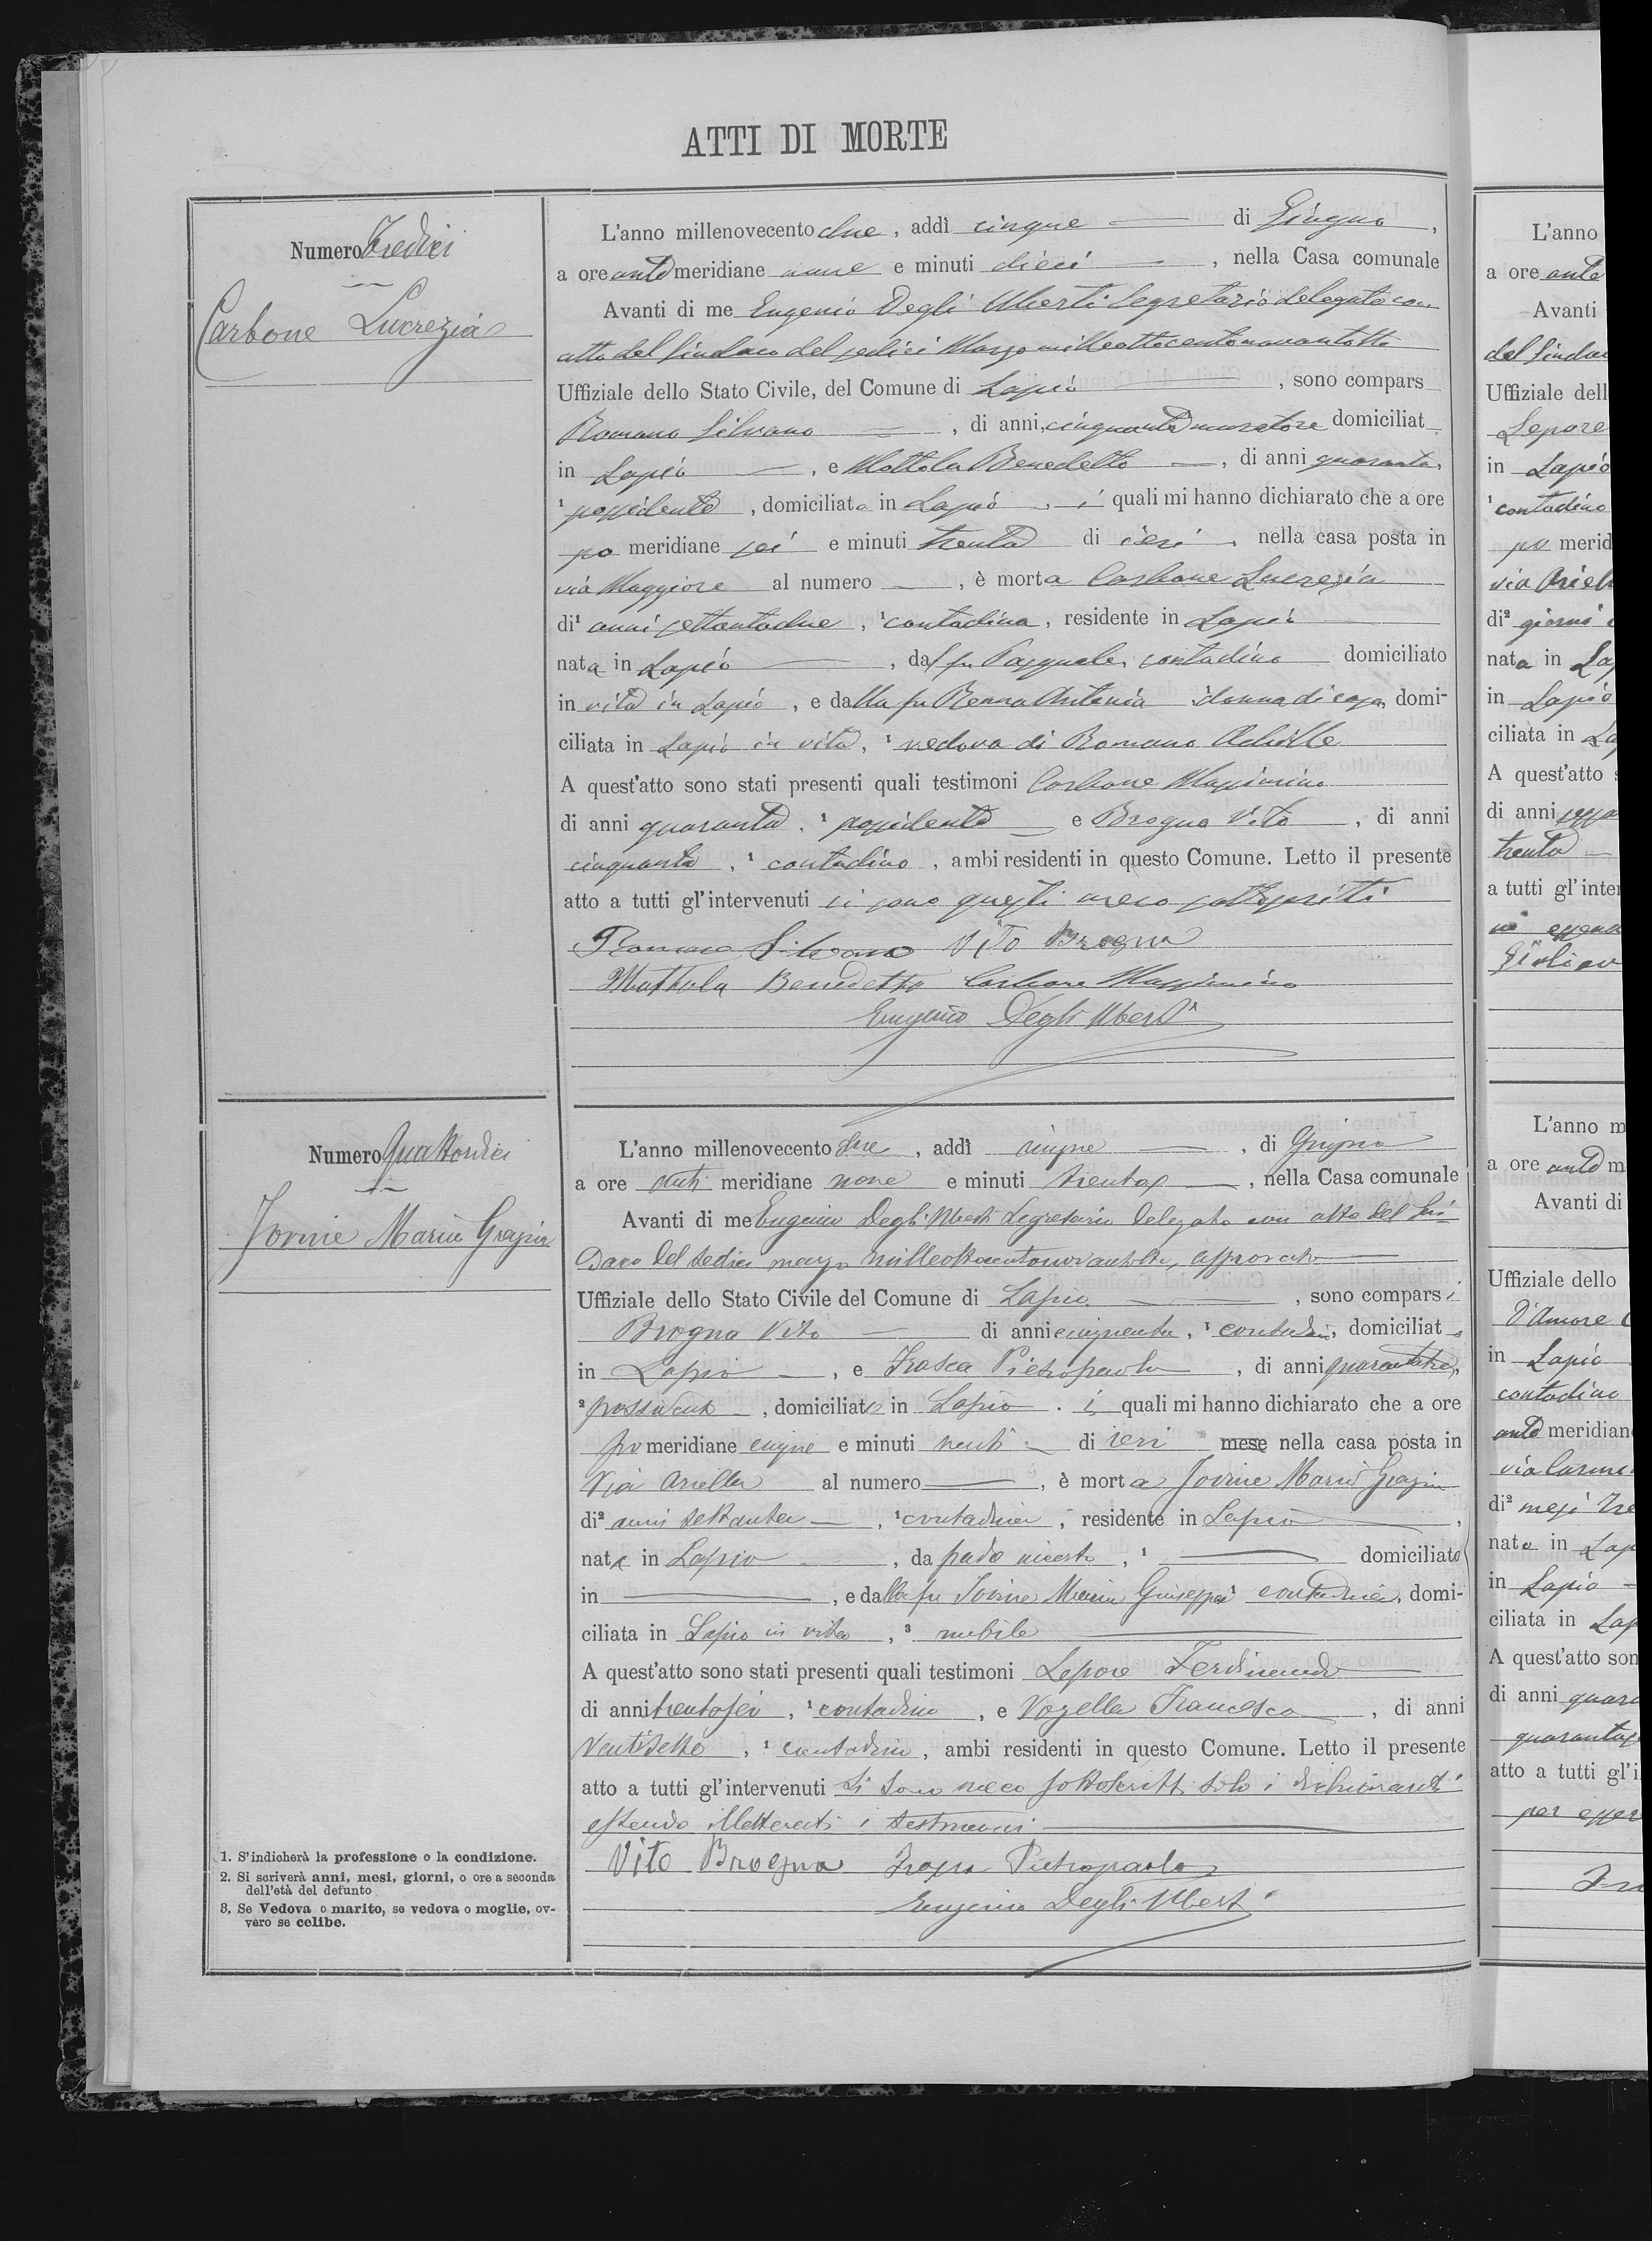 ATTI DI MORTE
Numero Tredici
Carbone Lucrezia
L'anno millenovecento due, addì cinque — di Giugno,
a ore ante meridiane nove e minuti dieci —, nella Casa comunale
Avanti di me Eugenio Degli Uberti Segretario delegato con
atto del Sindaco del sedici Marzo milleottocentonovantotto
Uffiziale dello Stato Civile, del Comune di Lapio —, sono compars
Romano Silvano —, di anni, cinquanta muratore domiciliat
in Lapio —, e Mottola Benedetto —, di anni quaranta,
¹ possidente, domiciliato in Lapio, i quali mi hanno dichiarato che a ore
po meridiane sei e minuti trenta di ieri, nella casa posta in
via Maggiore al numero —, è morta Carbone Lucrezia
di¹ anni settantadue, ¹ contadina, residente in Lapio
nata in Lapio —, dal fu Pasquale, contadino domiciliato
in vita in Lapio, e dalla fu Renna Antonia donna di casa domi-
ciliata in Lapio in vita, ¹ vedova di Romano Achille
A quest'atto sono stati presenti quali testimoni Carbone Massimino
di anni quaranta, ¹ possidente e Brogna Vito —, di anni
cinquanta, ¹ contadino, ambi residenti in questo Comune. Letto il presente
atto a tutti gl'intervenuti si sono questi meco sottoscritti
Romano Silvano Vito Brogna
Mottola Benedetto Carbone Massimino
Eugenio Degli Uberti
Numero Quattordici
Iovine Maria Grazia
L'anno millenovecento due, addì cinque —, di Giugno
a ore anti meridiane nove e minuti trenta —, nella Casa comunale
Avanti di me Eugenio Degli Uberti Segretario delegato con atto del Sin-
daco del sedici marzo milleottocentonovantotto, approvato —
Uffiziale dello Stato Civile del Comune di Lapio —, sono comparsi
Brogna Vito — di anni cinquanta, ¹ contadino, domiciliato
in Lapio —, e Frasca Pietropaolo, di anni quarantatre,
² possidente —, domiciliato in Lapio. i quali mi hanno dichiarato che a ore
po meridiane cinque e minuti venti — di ieri mese nella casa posta in
Via Ariella al numero —, è morta Iovine Maria Grazia
di² anni settanta —, ¹ contadina, residente in Lapio —,
nata in Lapio —, da padre incerto, ¹ — domiciliato
in —, e dalla fu Iovine Maria Giuseppa contadina, domi-
ciliata in Lapio in vita, ³ nubile —
A quest'atto sono stati presenti quali testimoni Lepore Ferdinando —
di anni trentasei, ¹ contadino, e Vozella Francesco, di anni
Ventisette, ¹ contadino, ambi residenti in questo Comune. Letto il presente
atto a tutti gl'intervenuti si sono meco sottoscritti solo i dichiaranti
essendo illetterati i testimoni —
Vito Brogna Frasca Pietropaolo
Eugenio Degli Uberti
1. S'indicherà la professione o la condizione.
2. Si scriverà anni, mesi, giorni, o ore a seconda
dell'età del defunto
3. Se Vedova o marito, se vedova o moglie, ov-
vero se celibe.
L'anno
a ore ante
Avanti
del Sindac
Uffiziale dell
Lepore
in Lapio
¹ contadino
po merid
via Ariell
di² giorni
nata in Lap
in Lapio
ciliata in La
A quest'atto
di anni
trenta —
a tutti gl'inter
L'anno m
a ore ante m
Avanti di
Uffiziale dello
D'Amore
in Lapio
contadino
ante meridian
via Carmi
di² mesi tre
nato in Lap
in Lapio —
ciliata in Lap
A quest'atto son
di anni quara
quaranta
atto a tutti gl'i
per esser